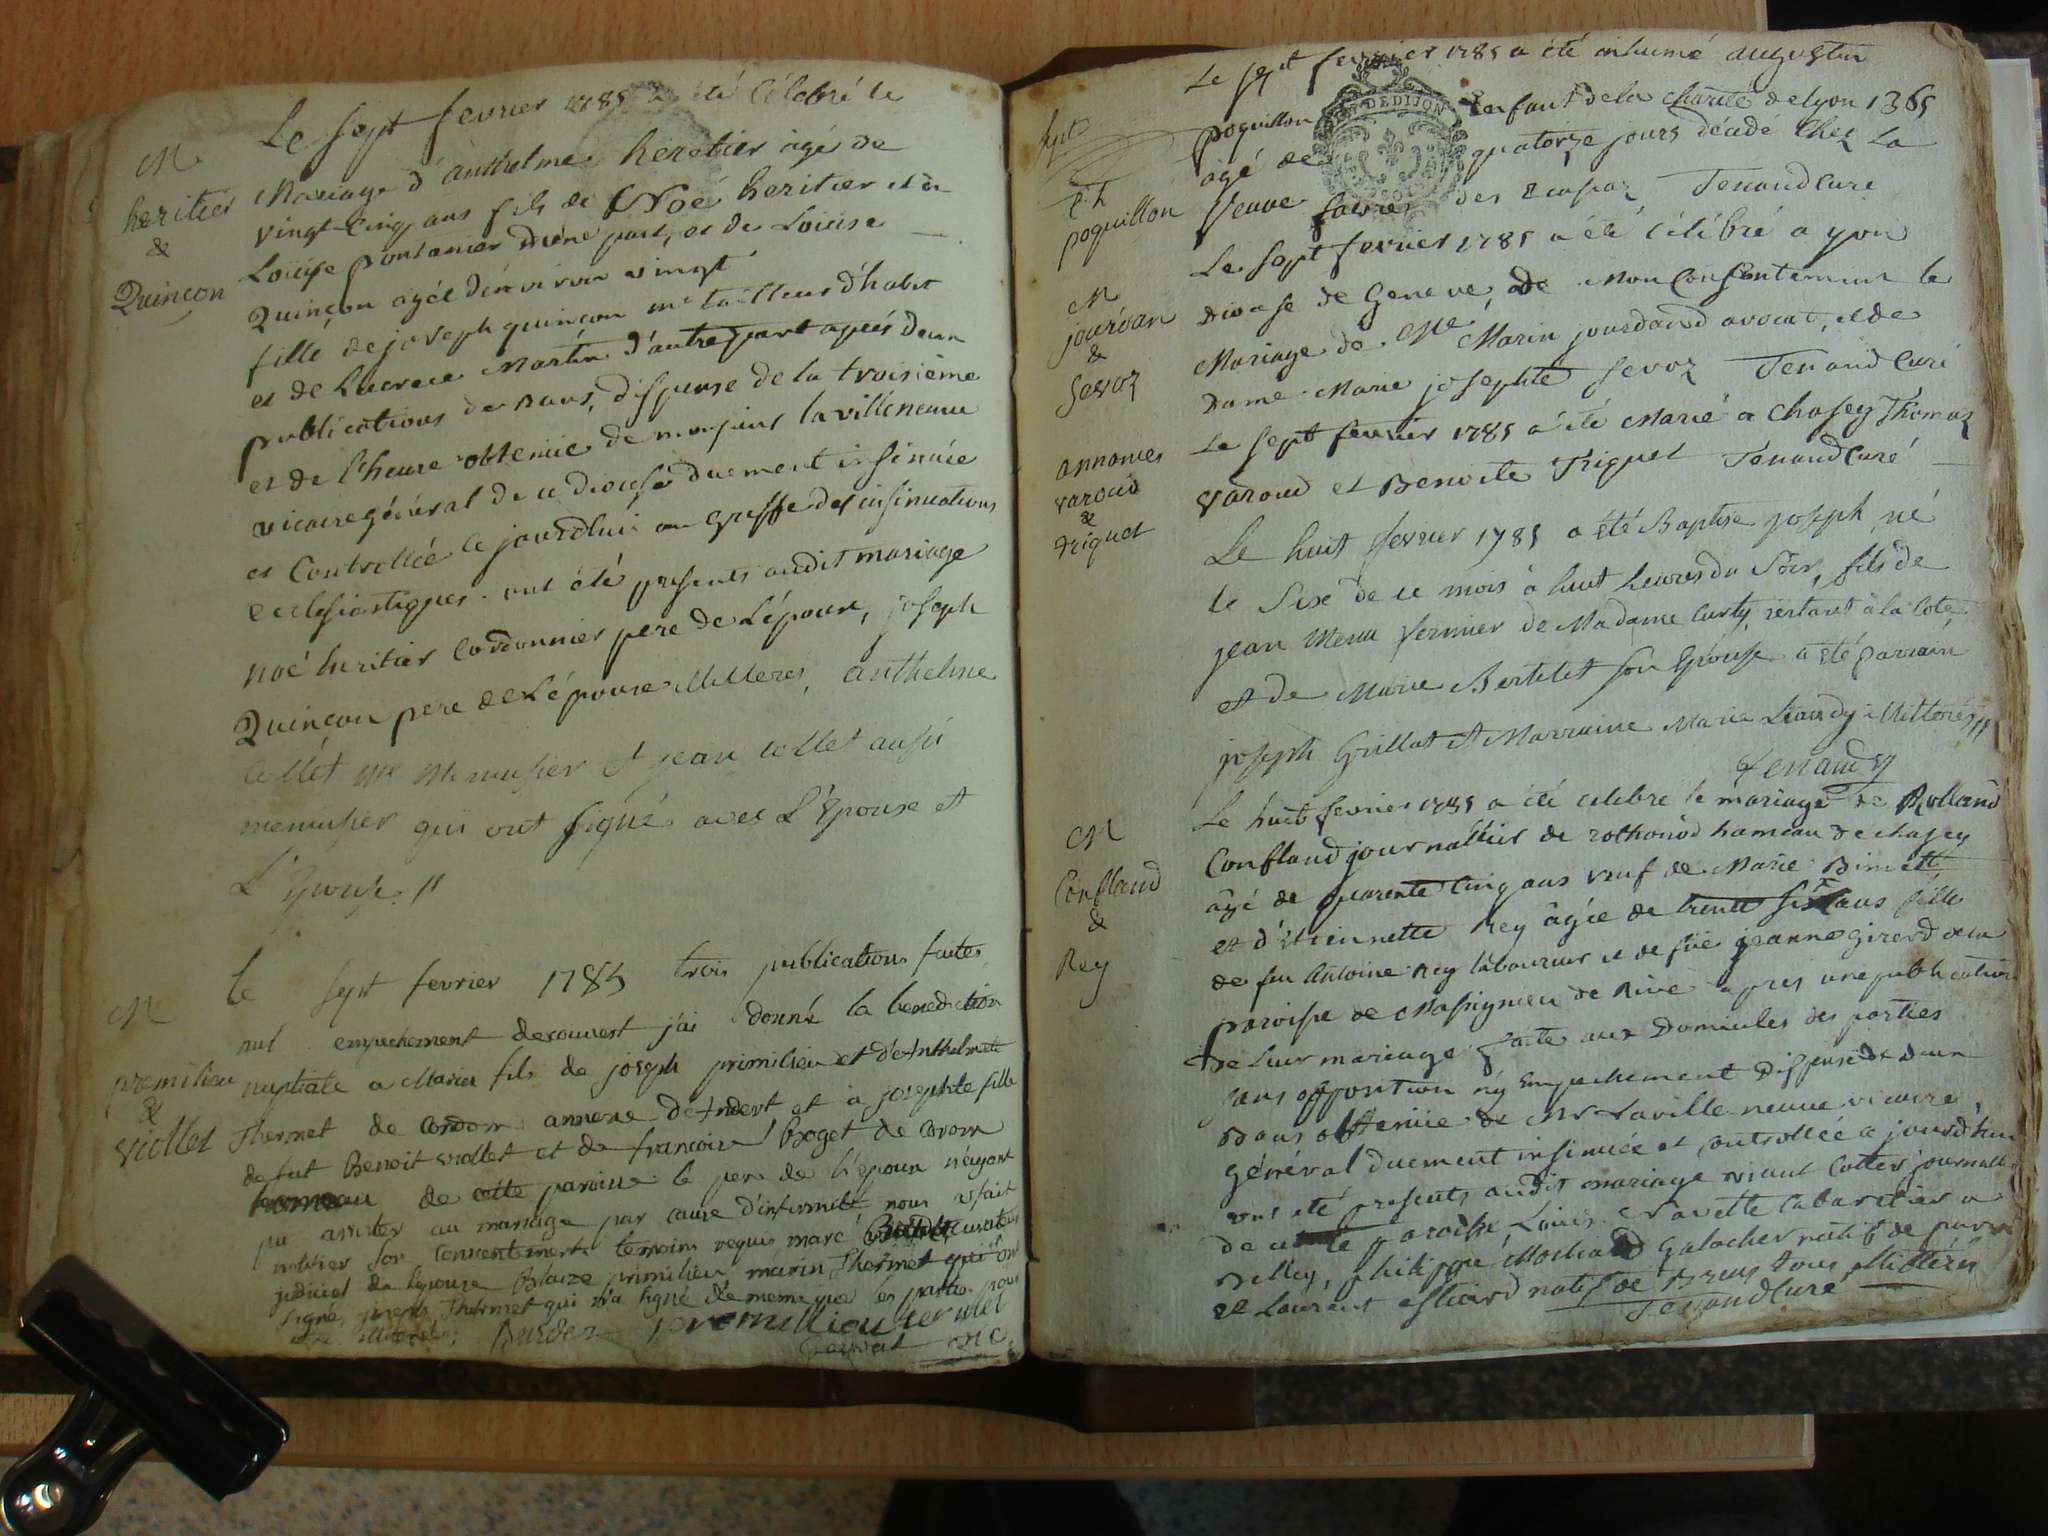 Le sept fevrier 1785 a été célébré le
M
heritier
&
Quinçon
Mariage d'anthelme heretier agé de
vingt-cinq ans fils de Noé heritier et de
Loüise pontanier d'une part, et de Loüise
Quinçon agée d'environ vingt
fille de joseph quincon me tailleur d'habit
et de Lucrece Martin d'autre part après deux
publications de Bans, dispense de la troisieme
et de l'heure obtenüe de monsieur la villeneuve
vicaire général de ce diocese duement insinuée
et Controllée ce jourd'hui au Greffe des insinuations
ecclesiastiques. ont été presents audit mariage
Noé heritier Cordonnier pere de L'époux, joseph
Quinçon pere de L'épouse illitteres, anthelme
Collet me Menusier et jean collet aussi
menusier qui ont signé avec L'Epouse et
L'Epoux. //
M
premilieu
&
Viollet
le sept fevrier 1785 trois publications faites
nul empechement decouvert j'ai donné la benediction
nuptiale a Marin fils de joseph primilieu et d'Anthelmette
Thermet de Condom annexe d'Andert et à josephte fille
de fut Benoit viollet et de françoise Boget de Coron
hameau de cette paroisse le pere de l'epoux n'ayant
pu assister au mariage par cause d'infirmité nous a fait
notifier son consentement temoins requis marc Burdet curateur
judiciel de l'epouse Blaize primilieu marin Thermet qui ont
signé, joseph Thermet qui n'a signé de meme que les parties pour
etre illiterés; Burdet premillieu termet
vic.
Le sept fevrier 1785 a été inhumé augustin
sept
E. h
poquillon
poquillon Enfant de la charité de Lyon 1365
DE DIJON
agé de quatorze jours décédé chez La
Veuve favre des Ecassaz Tenand Curé
M
jourdan
&
Sevoz
Le sept fevrier 1785 a été célébré a yon
Diocese de Geneve, de mon Consentement le
Mariage de Me Marin jourdan avocat, et de
Dame Marie josephte Sevoz Tenand Curé
annonces
varoud
&
triquet
Le sept fevrier 1785 a été Marié a Chasey Thomas
Varoud et Benoite Triquet Tenand Curé
Le huit fevrier 1785 a été Baptisé joseph, né
le Six de ce mois à huit heures du Soir, fils de
jean Menu fermier de Madame Curty, restant à la Cote,
et de Marie Bertelet Son Epouse a été parrain
joseph Grillat et Marraine Marie Liaudy illitterés //
Tenand
M
Confland
&
Rey
Le huit fevrier 1785 a été celebré le mariage de Rolland
Confland journallier de rothonod hameau de chasey
âgé de quarente Cinq ans veuf de Marie Binett
et d'Etiennette Rey âgée de trente six ans fille
de feu Antoine Rey laboureur et de füe jeanne Girerd de la
paroisse de Massignieu de Rive apres une publication
de leur mariage faite aux Domiciles des parties
sans opposition ny Empechement Dispense de deux
Bans obtenüe de Mr Laville-neuve vicaire
général duement insinuée et controllée ce jourd'hui
ont été presents audit mariage Collet journallier
de cette paroisse Louis Navette Cabaretier a
Belley, philippe Mochard Galocher natif de
et Laurent Estierd natif de tous illitterés
Tenand Curé